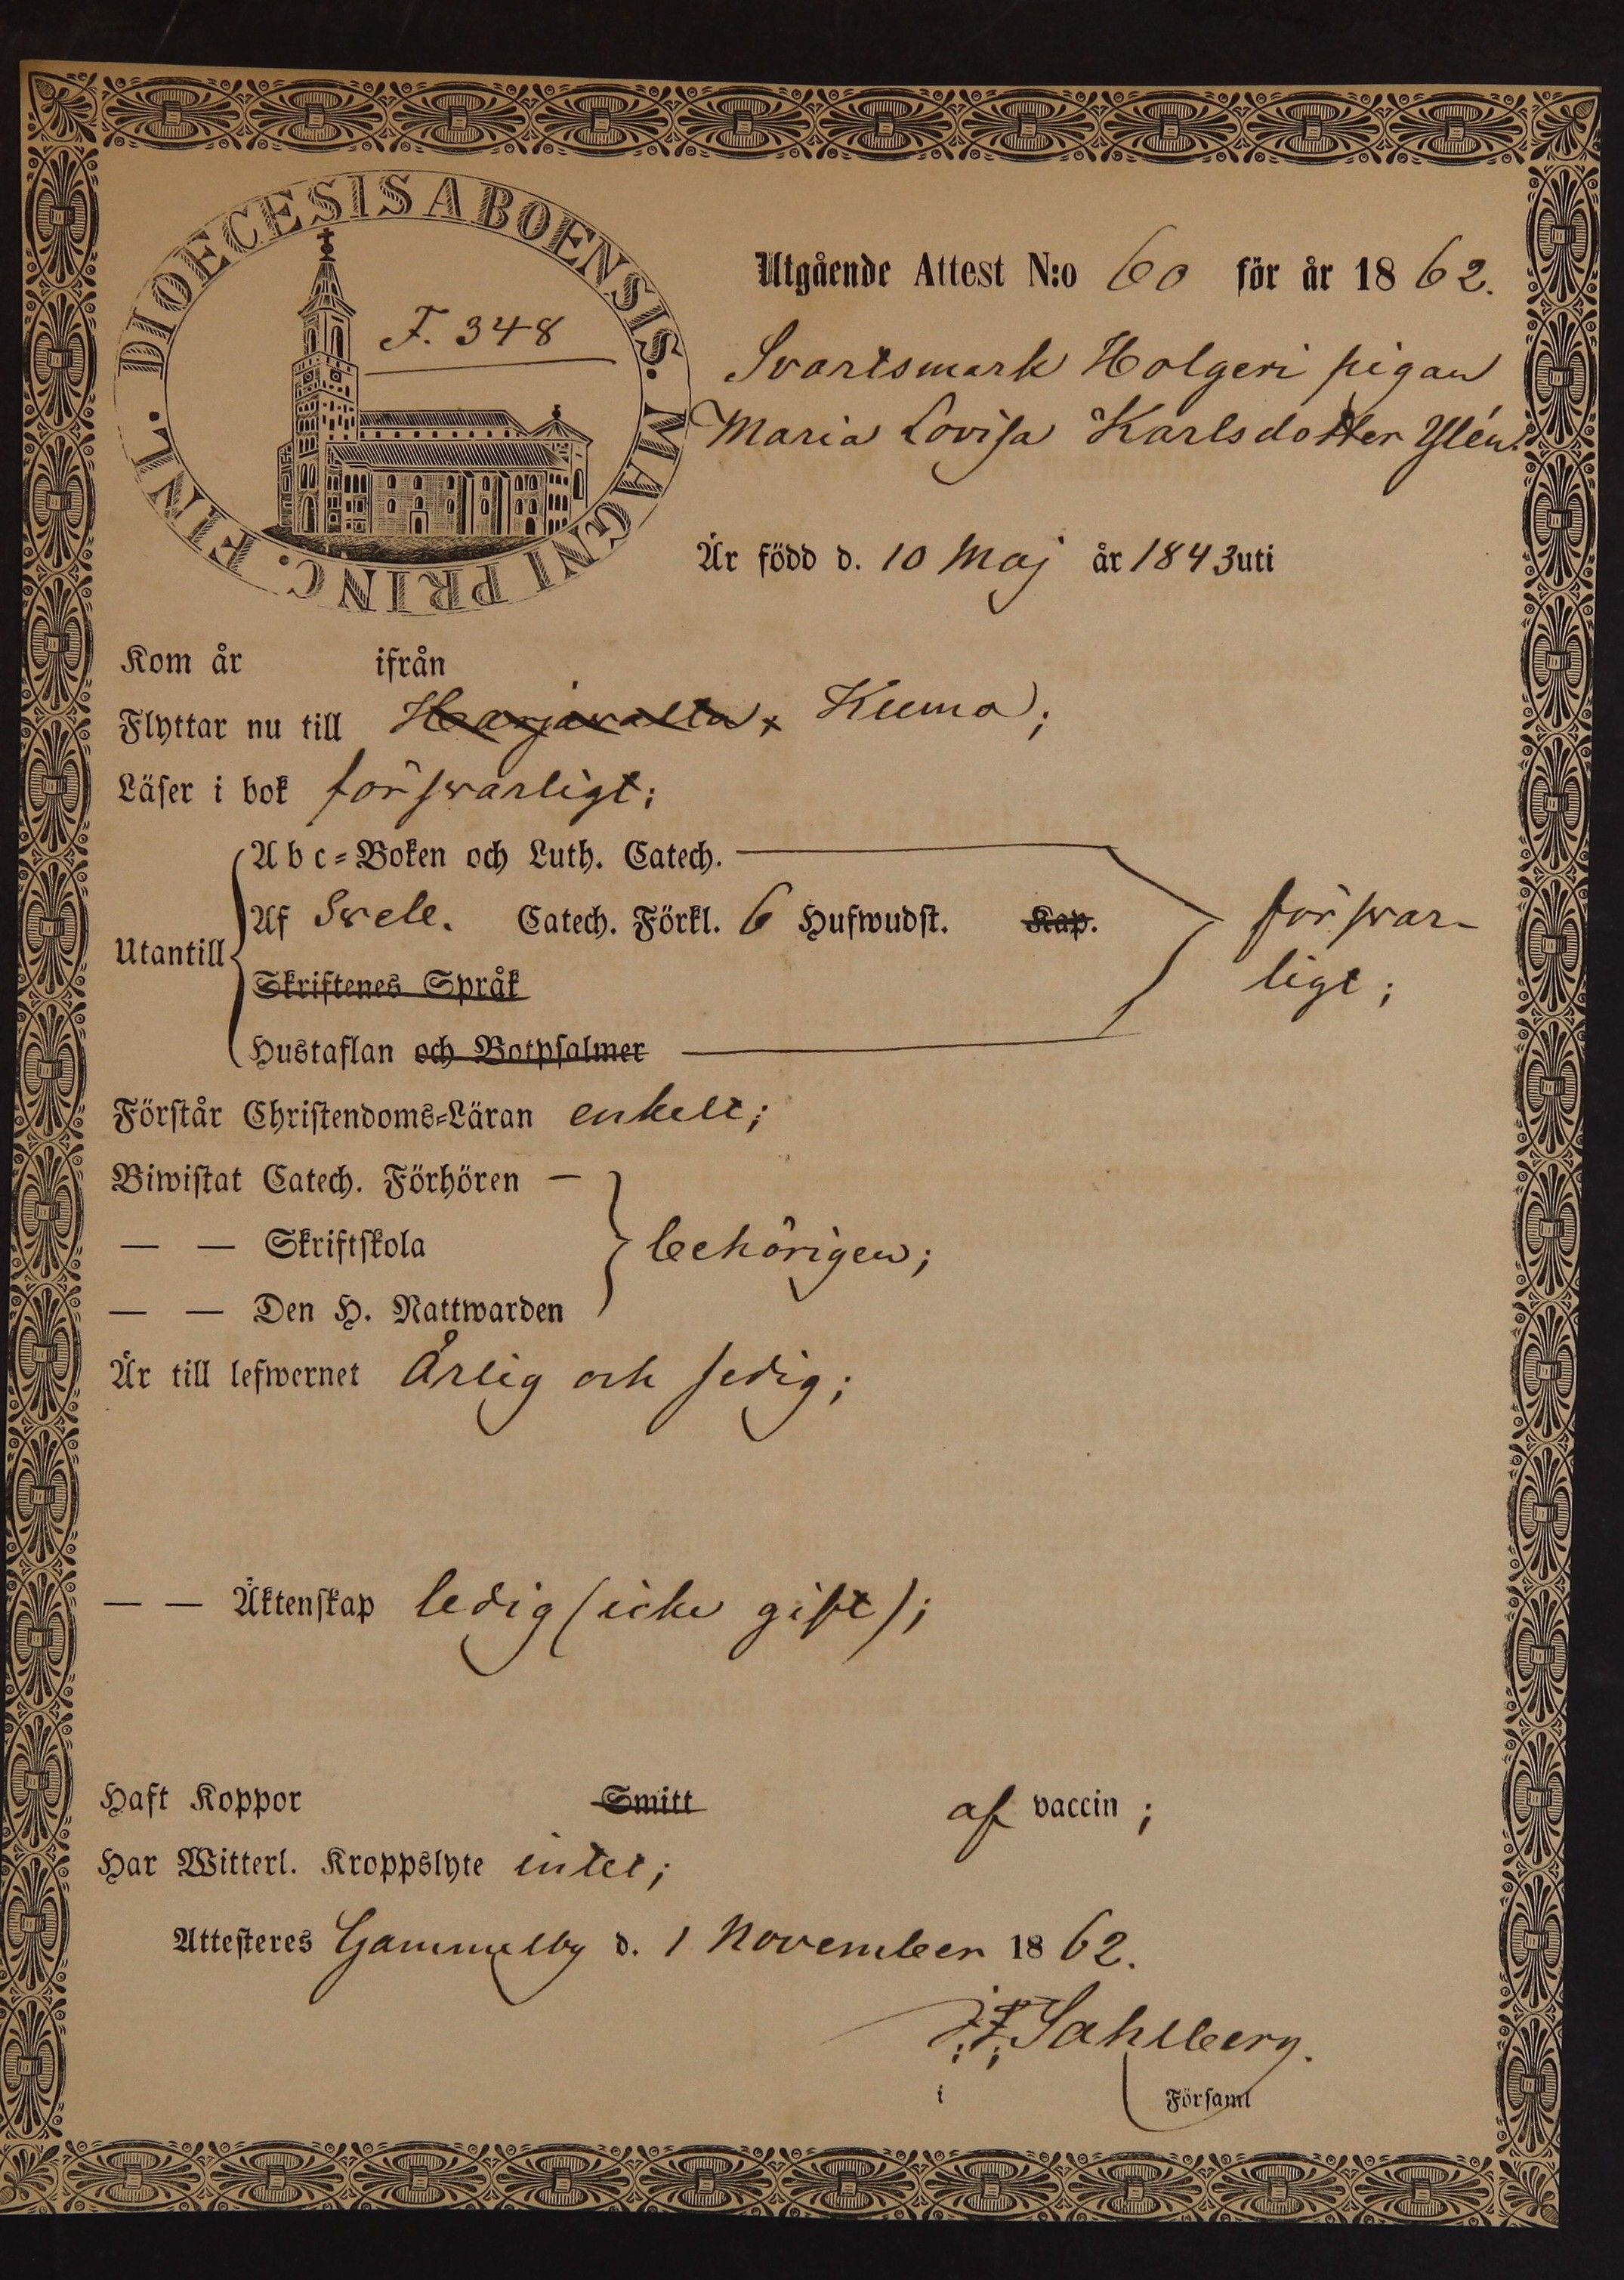 DIOECESIS ABOENSIS. MAGNI PRINC. FINL.
F. 348
Utgående Attest N:o 60 för år 1862.
Svartsmark Holgeri pigan
Maria Lovisa Karlsdotter Ylén.
Är född d. 10 Maj år 1843 uti
Kom år ifrån
Flyttar nu till Harjavalta, Kumo;
Läser i bok försvarligt;
Abc-Boken och Luth. Catech.
Utantill Af Svel. Catech. Förkl. 6 Hufwudst. Kap. försvar-
Skriftenes Språk ligt;
Hustaflan och Botpsalmer
Förstår Christendoms-Läran enkelt;
Biwistat Catech. Förhören —
— — Skriftskola behörigen;
— — Den H. Nattwarden
Är till lefwernet Ärlig och sedig;
— — Äktenskap ledig (icke gift);
Haft Koppor Smitt af vaccin;
Har Witterl. Kroppslyte intet;
Attesteres Gammelby d. 1 November 1862.
Sahlberg.
i Församl